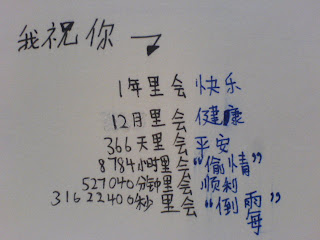 我祝你
1年里会 快乐
12月里会 健康
366天里会 平安
8784小时里会 “偷情”
527040分钟里会 顺利
31622400秒里会 “倒雨每”